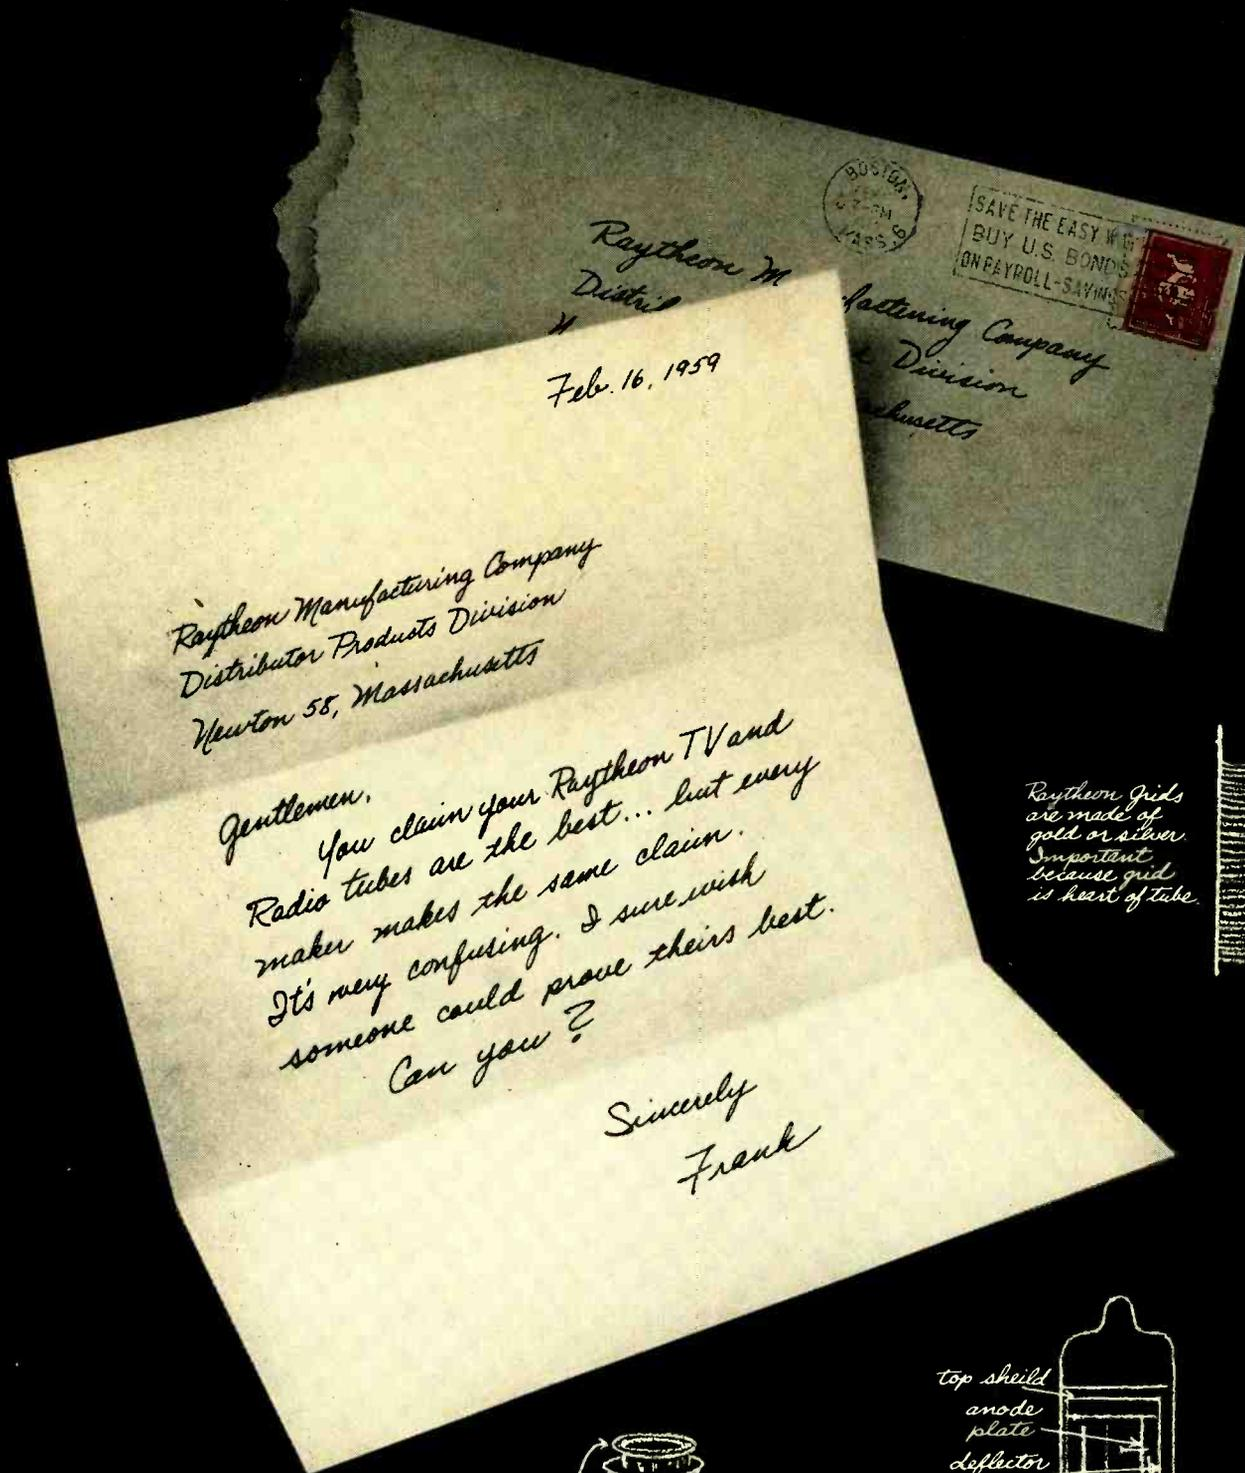 BOSTON,
MASS
SAVE THE EASY W
BUY U.S. BONDS
ON PAYROLL-SAVINGS
Raytheon M facturing Company
Distri Division
achusetts
Feb. 16, 1959
Raytheon Manufacturing Company
Distributor Products Division
Newton 58, Massachusetts
Gentlemen,
You claim your Raytheon TV and
Radio tubes are the best... but every
maker makes the same claim.
It's very confusing. I sure wish
someone could prove theirs best.
Can you?
Sincerely
Frank
Raytheon grids
are made of
gold or silver.
Important
because grid
is heart of tube.
top sheild
anode
plate
deflector